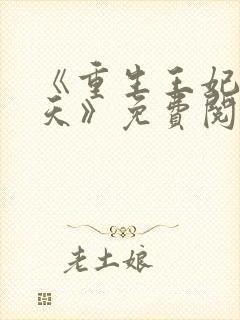 《重生王妃
天》免費閱
老土娘